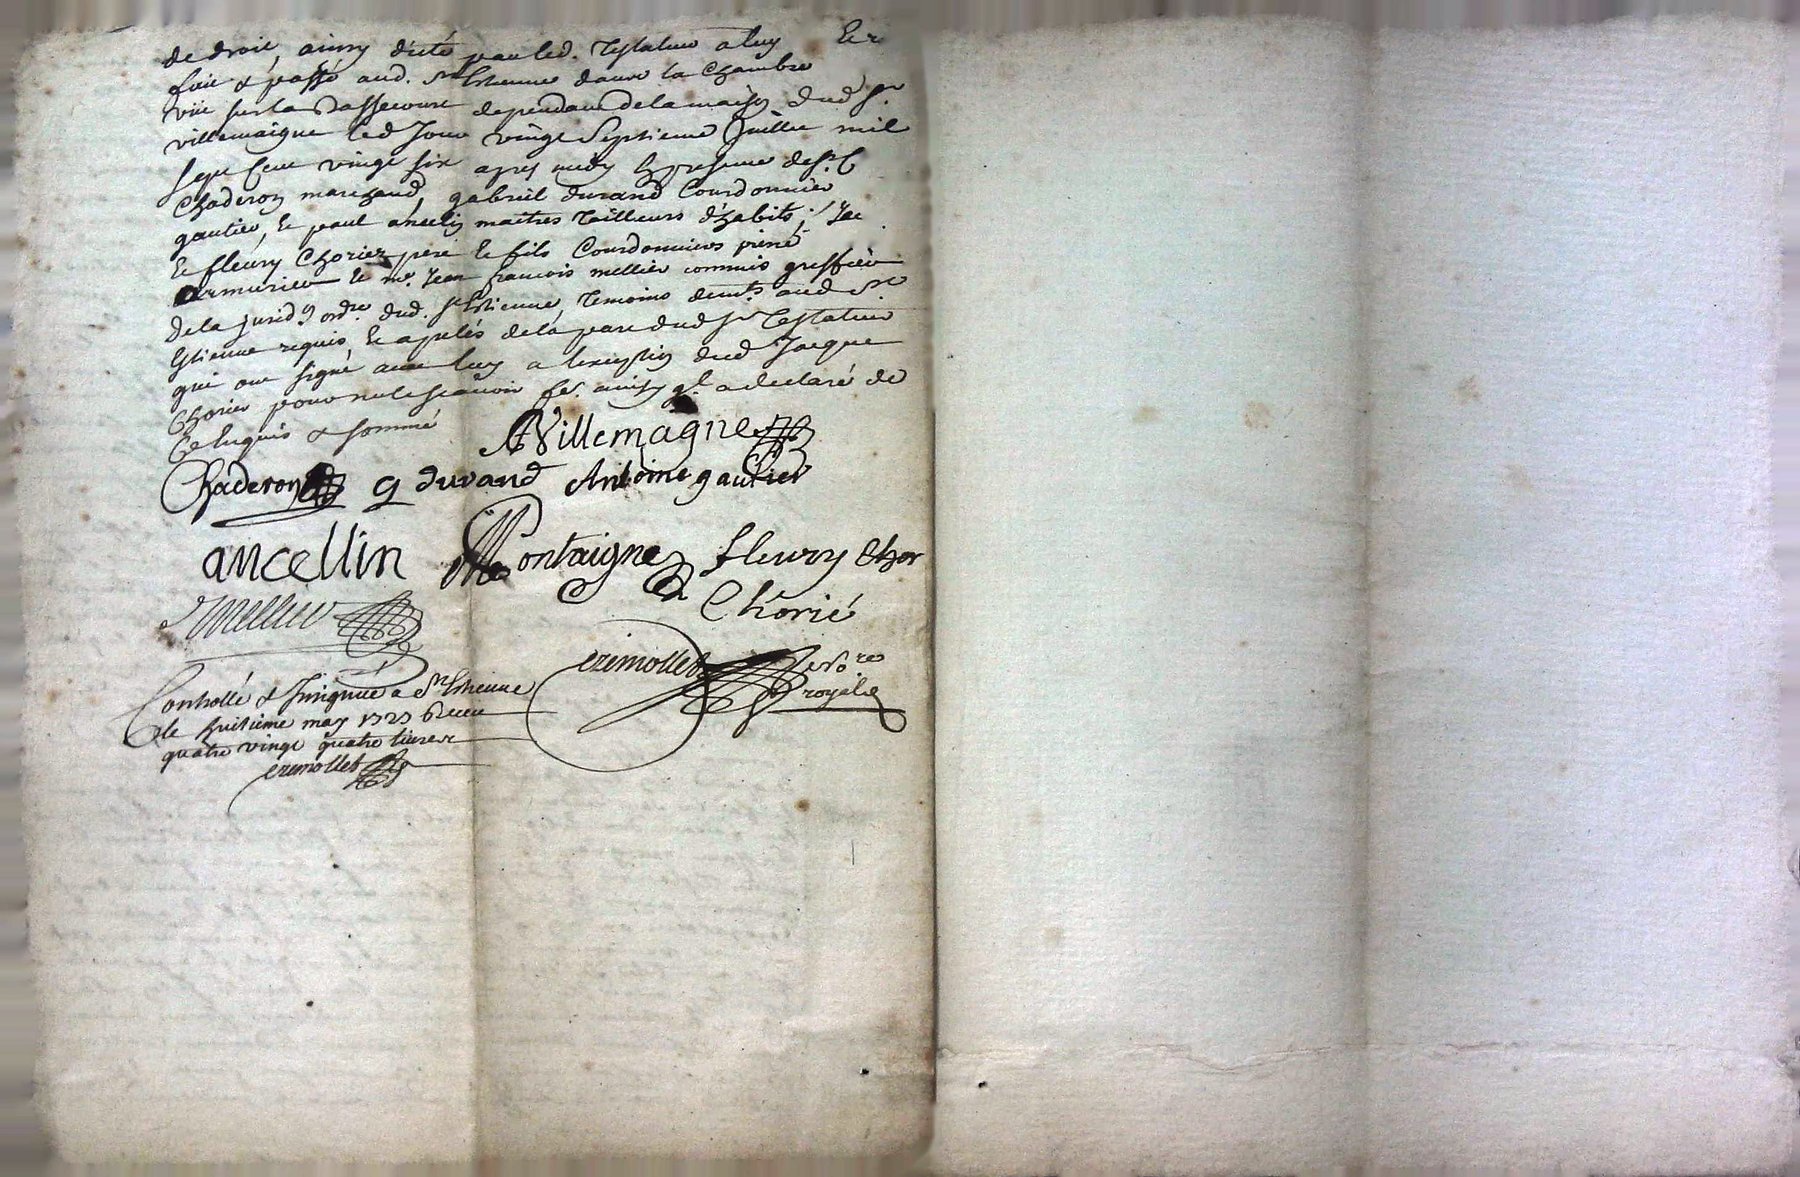 de droit ainsy dicté par led. Testateur a luy
fait & passé aud. St Estienne dans la Chambre
sur la Bassecourt dependant de la maison dud Sr
villemaigne led Jour vingt Septieme Juillet mil
sept cent vingt six apres midy En presence de Sr
Chaderon marchand, gabriel durand Courdonnier
gautier, & paul ancelin maitres Tailleurs d'habits,
& fleury Choriez pere & fils Courdonniers
armurier & me. Jean francois mellier commis greffier
de la jurid on ordre dud. St Estienne, Temoins aud St
Estienne requis & apelés de la part dud Sr Testateur
qui ont signé avec luy a lexception dud Jacque
Chorier pour ne le scavoir fe. ainsy ql. a declaré de
Ce Enquis & sommé
Villemagne
Chaderon g durand Antoine gautier
ancellin Montaigne fleury Chor
Chorié
Mellier
ezemollet nore
royal
Controllé & Insignué a St Estienne
le huitieme may 1727 Receu
quatre vingt quatre livres
ezemollet